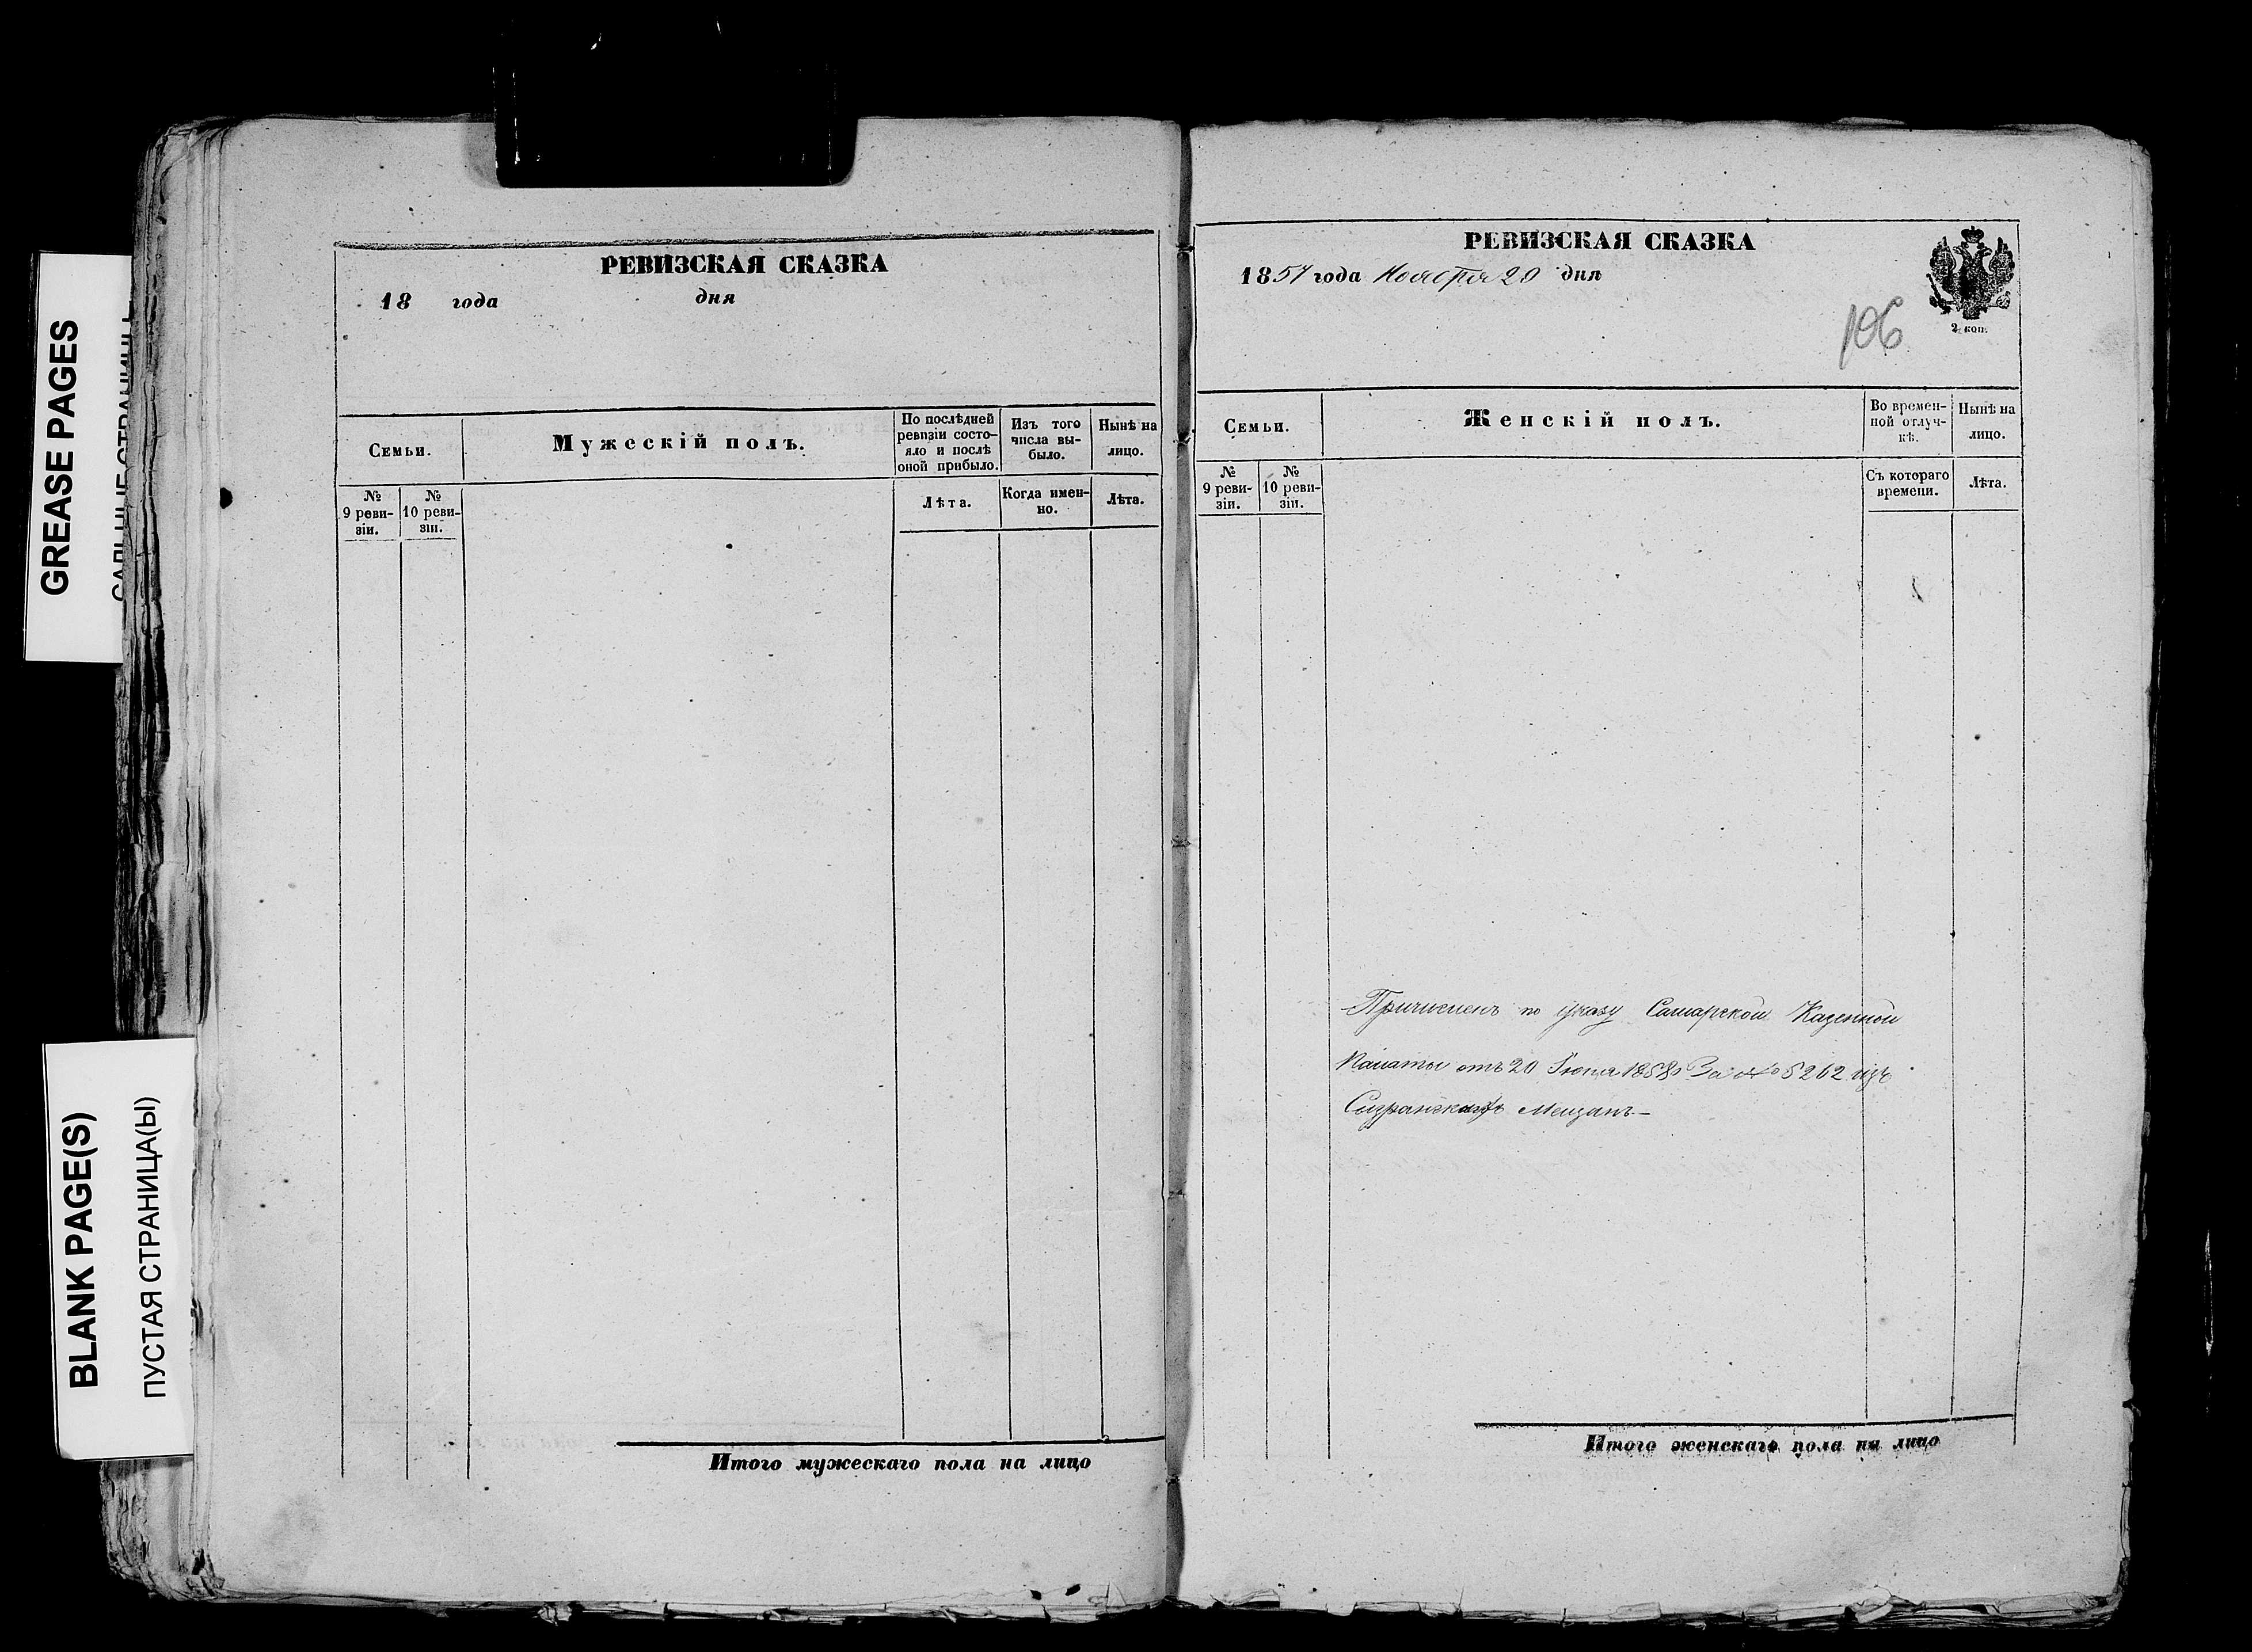 GREASE PAGES
BLANK PAGE(S)
ПУСТАЯ СТРАНИЦА(Ы)
РЕВИЗСКАЯ СКАЗКА
18 года дня
Семьи.
Мужескій полъ.
По послѣдней
ревизіи состо-
яло и послѣ
оной прибыло.
Изъ того
числа вы-
было.
Нынѣ на
лицо.
№
9 реви-
зіи.
№
10 реви-
зіи.
Лѣта.
Когда имен-
но.
Лѣта.
Итого мужескаго пола на лицо
РЕВИЗСКАЯ СКАЗКА
1857 года Ноября 20 дня
2 коп.
106
Семьи.
Женскій полъ.
Во времен-
ной отлуч-
кѣ.
Нынѣ на
лицо.
№
9 реви-
зіи.
№
10 реви-
зіи.
Съ котораго
времени.
Лѣта.
Причисленъ по указу Самарской Казенной
Палаты отъ 20 Іюня 1858 За № 5262 изъ
Сызранскихъ Мещанъ—
Итого женскаго пола на лицо